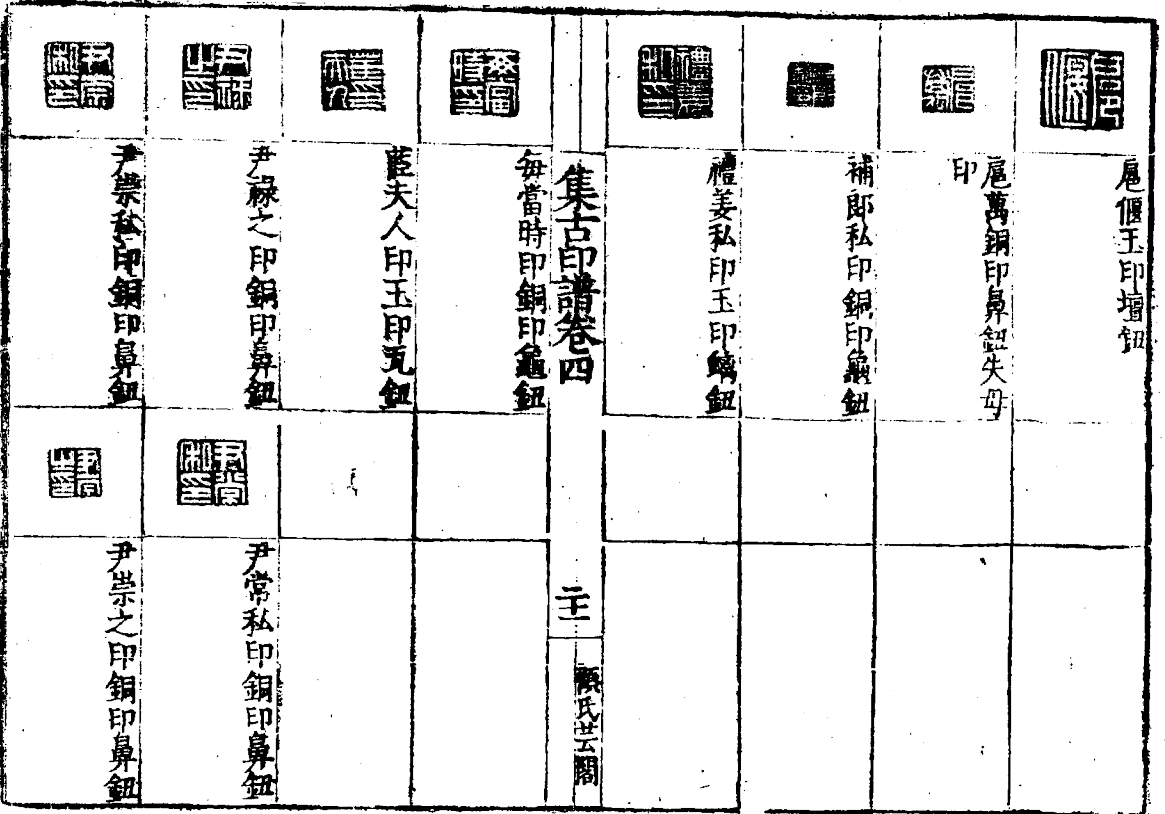 扈偃玉印壇鈕
扈萬銅印鼻鈕失母
印
補郎私印銅印龜鈕
禮姜私印玉印螭鈕
集古印譜卷四
二十一
顧氏芸閣
每當時印銅印龜鈕
藍夫人印玉印瓦鈕
尹祿之印銅印鼻鈕
尹崇私印銅印鼻鈕
尹常私印銅印鼻鈕
尹崇之印銅印鼻鈕